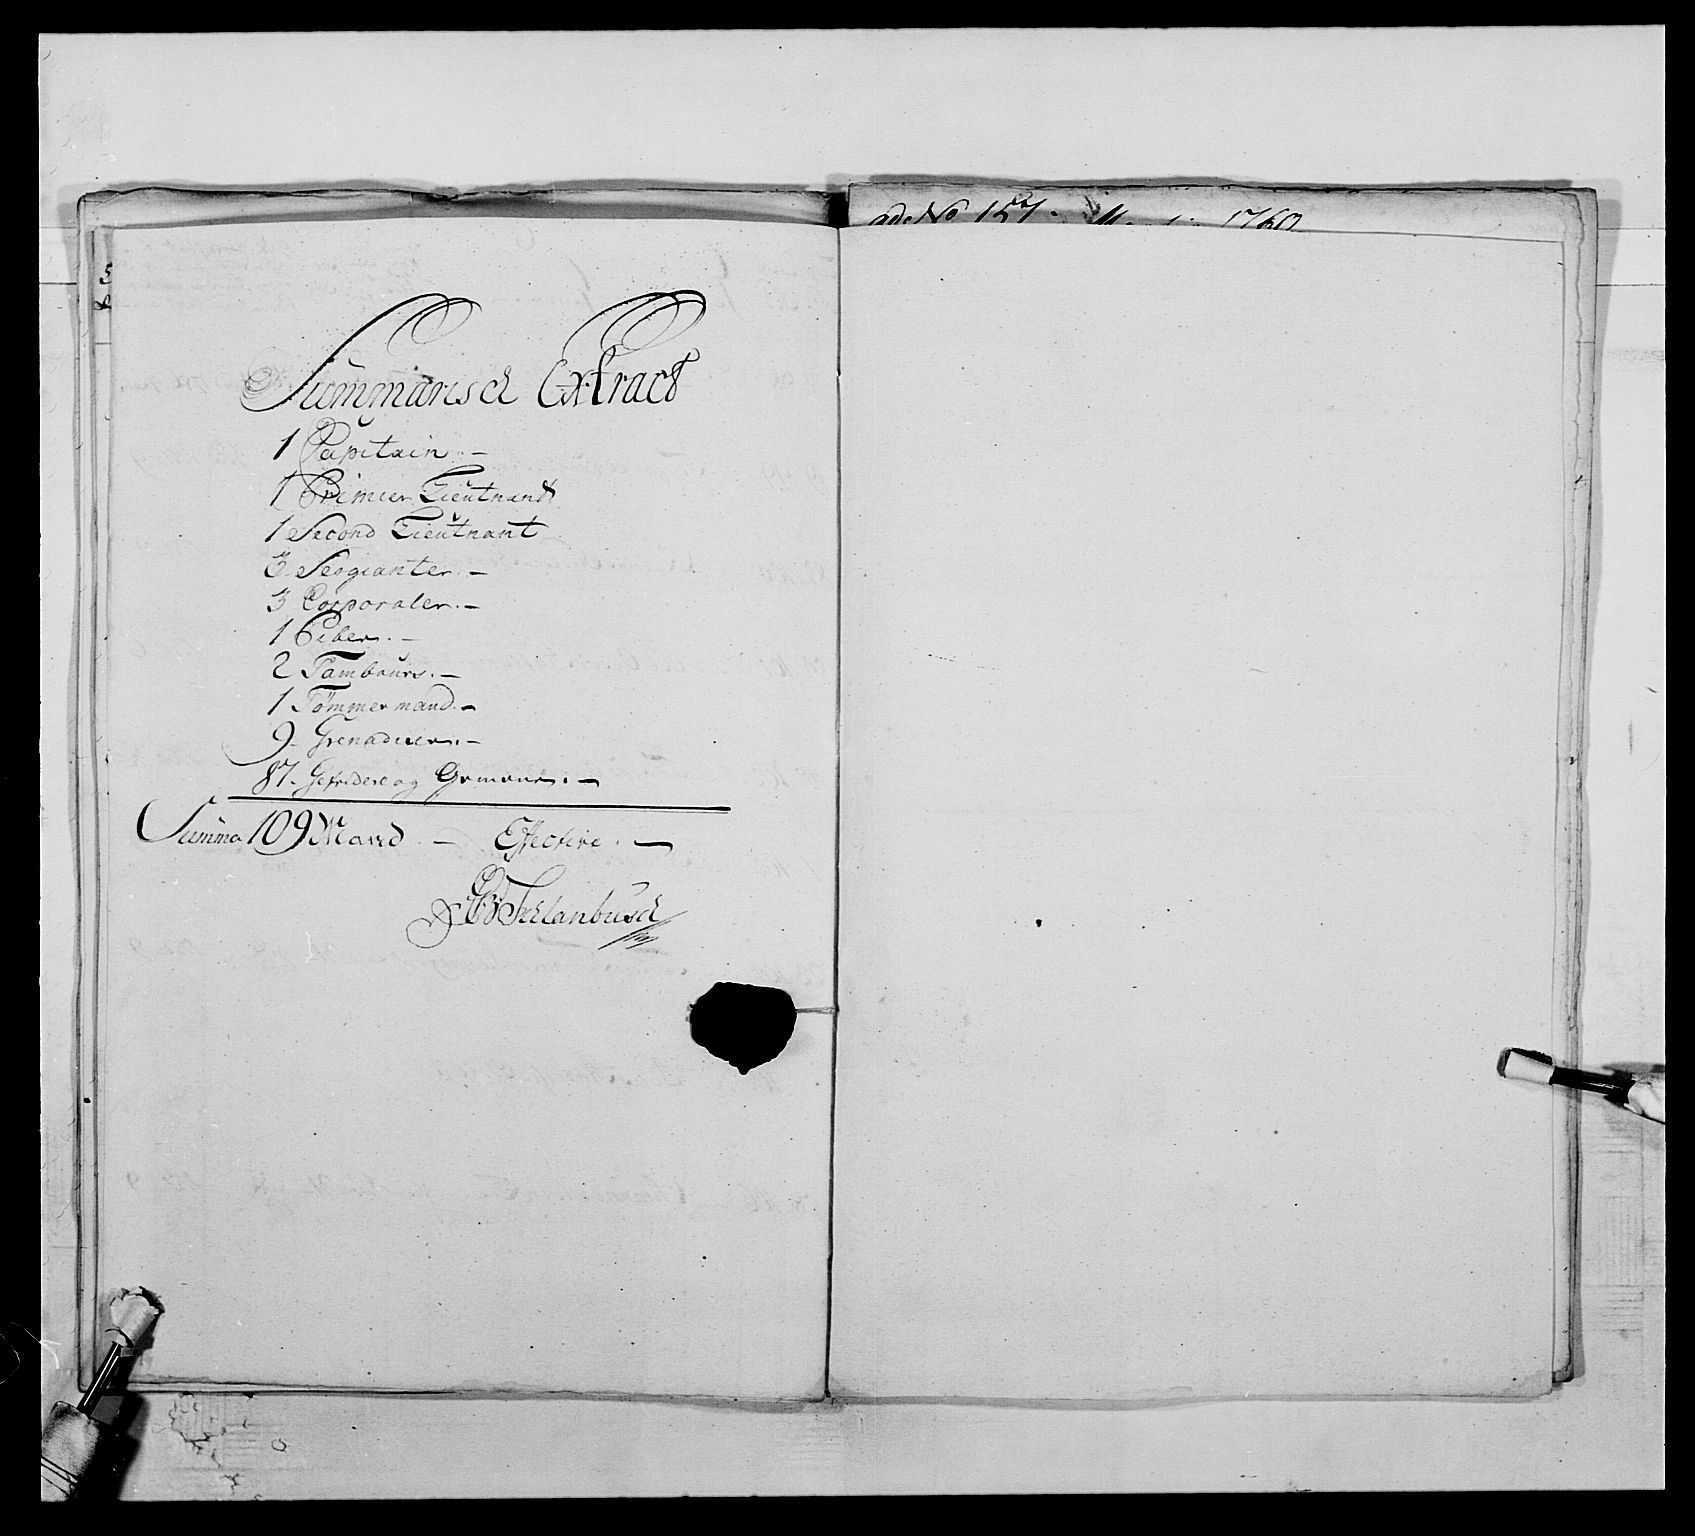 Summarisch Extract
1 Capitain. —
1 Primier Lieutnant
1 Second Lieutnant
3 Sergianter. —
3 Corporaler. —
1 Piber. —
2 Tambours. —
1 Tømmermand. —
9 Grenaderer. —
87. Gefridere og Gemene. —
Summa 109 Mand. — Effective. —
Schlanbusch
ad No 157. 1760